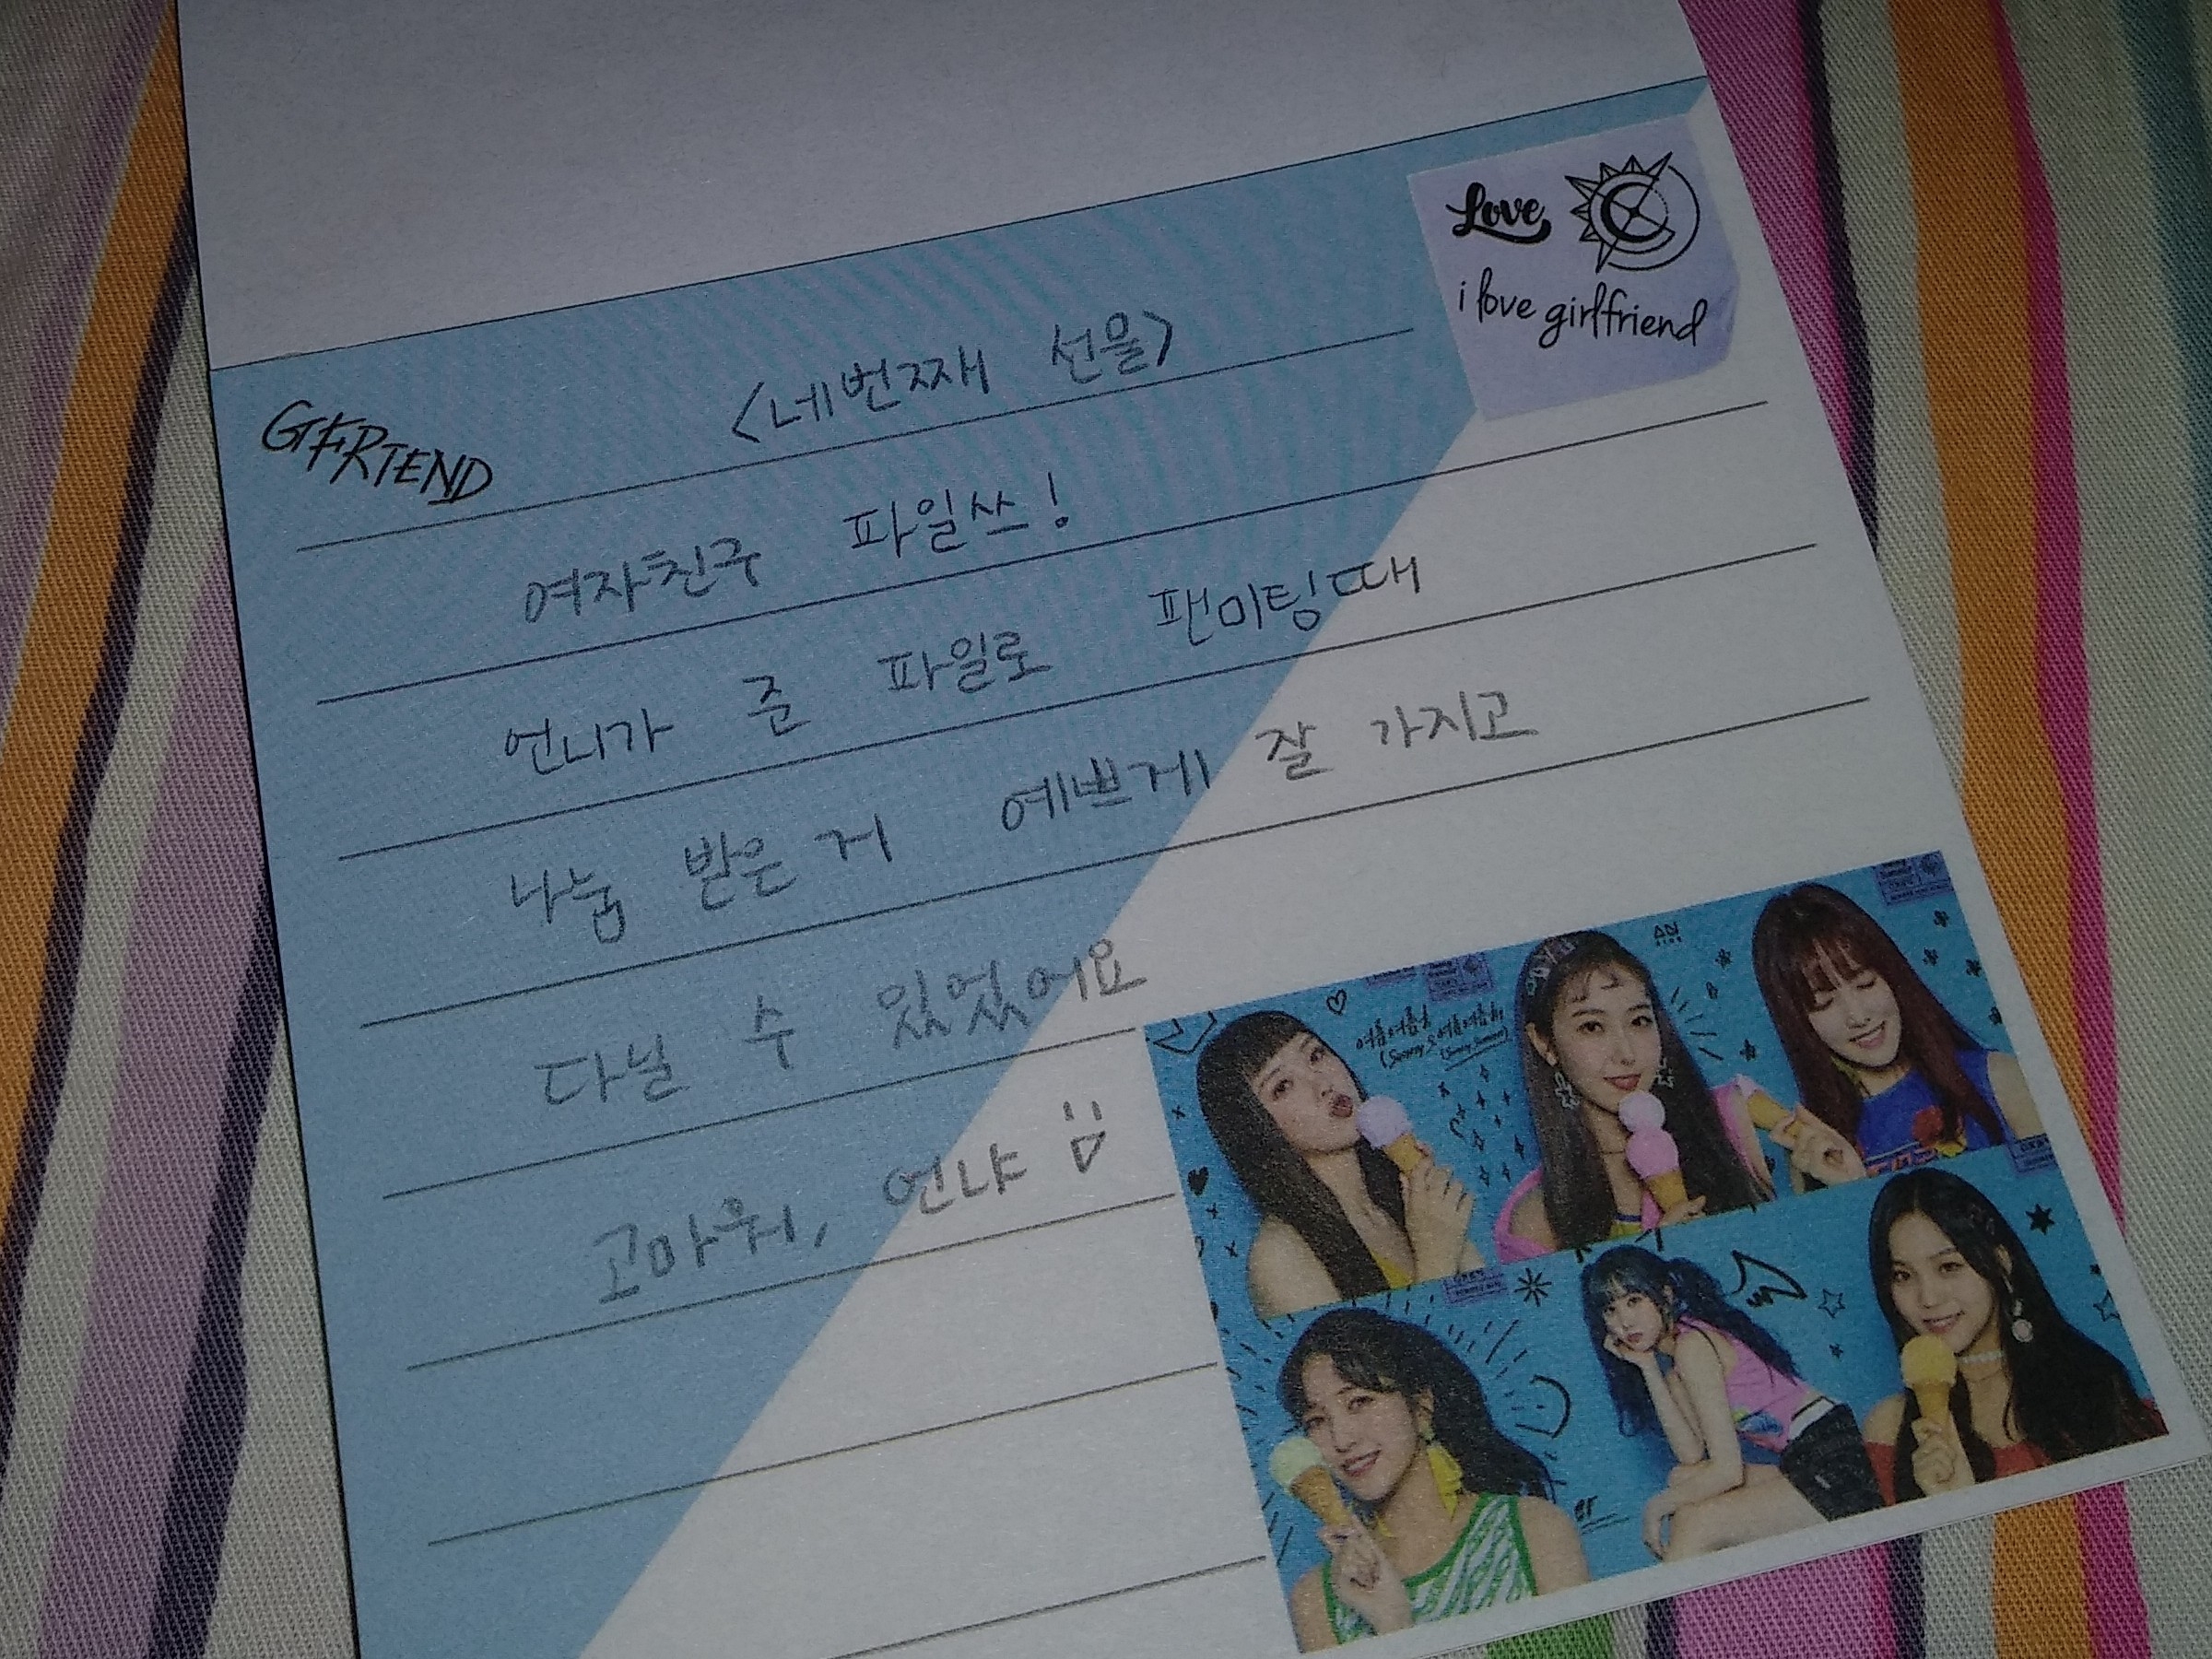 Love
i love girlfriend
GFRIEND
<네번째 선물>
여자친구 파일쓰!
언니가 준 파일로 팬미팅때
나눔 받은거 예쁘게 잘 가지고
다닐 수 있었어요
고마워, 언냐
여름여름해
(Sunny Summer)
여름여름해
(Sunny Summer)